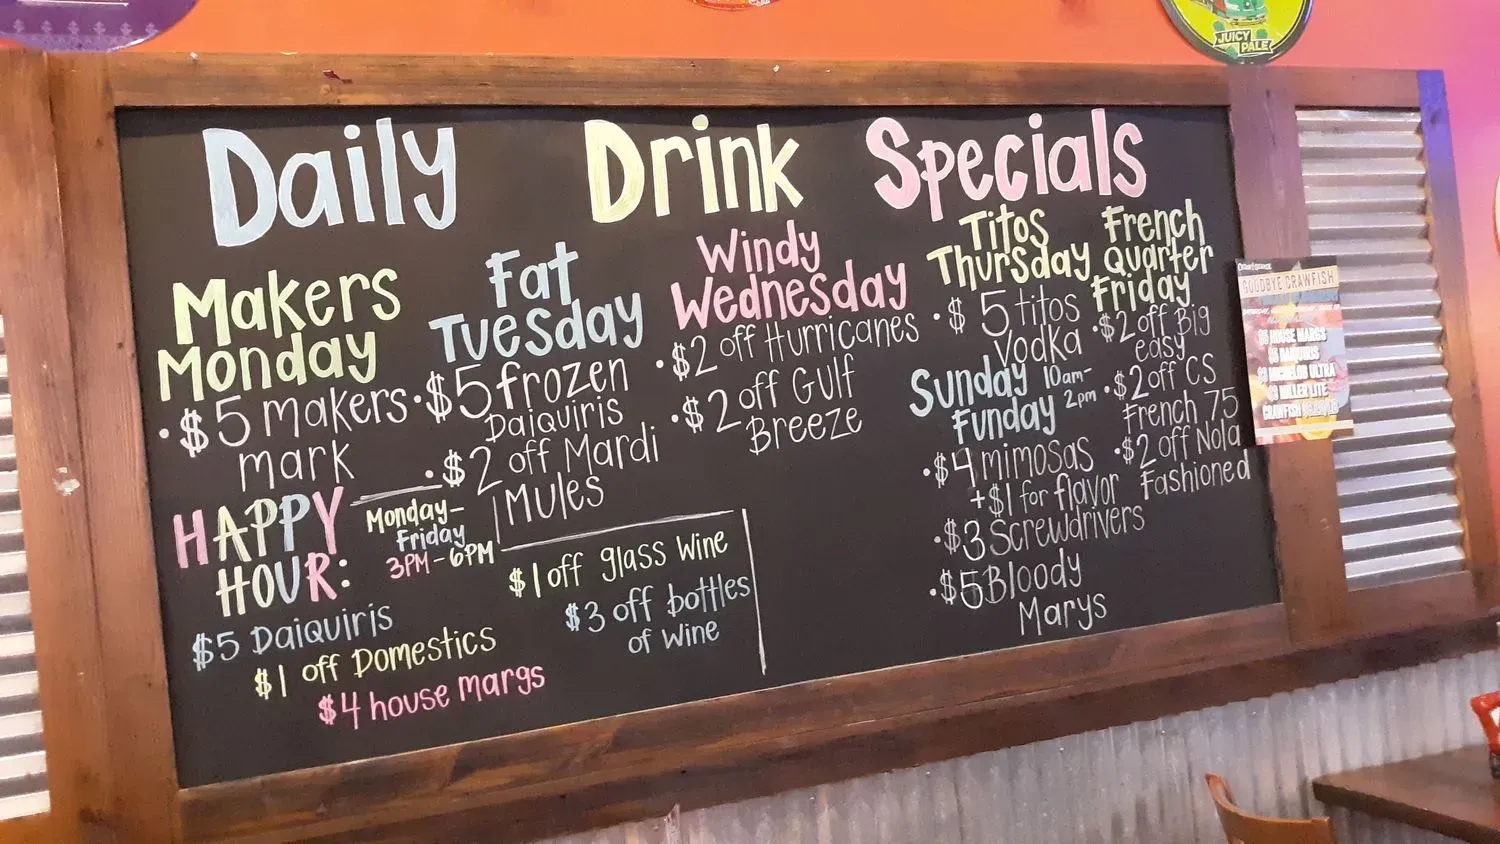 JUICY
PALE
Daily Drink Specials
Makers
Monday
• $5 makers
mark
Fat
Tuesday
• $5 frozen
Daiquiris
• $2 off Mardi
Mules
Windy
Wednesday
• $2 off Hurricanes
• $2 off Gulf
Breeze
Titos
Thursday
• $5 titos
Vodka
French
quarter
Friday
• $2 off Big
easy
• $2 off CS
French 75
• $2 off Nola
Fashioned
Sunday 10am-
Funday 2pm
• $4 mimosas
+$1 for flavor
• $3 Screwdrivers
• $5 Bloody
Marys
HAPPY
HOUR:
Monday-
Friday
3PM-6PM
$5 Daiquiris
$1 off Domestics
$4 house margs
$1 off glass wine
$3 off bottles
of wine
GOODBYE CRAWFISH
HOUSE MARGS
DAIQUIRIS
MICHELOB ULTRA
MILLER LITE
CRAWFISH